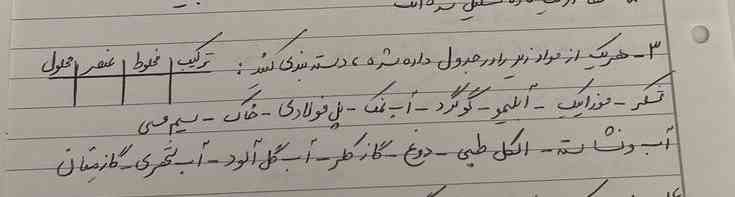 ۳- هریک از مواد زیر را در جدول داده شده، دسته بندی کنید: ترکیب | مخلوط | عنصر | محلول
شکر - موزاییک - آبلیمو - گوگرد - آب نمک - پل فولادی - خاک - سیم مسی
آب و نشاسته - الکل طبی - دوغ - گاز کلر - آب گل آلود - آب شهری - گاز متان